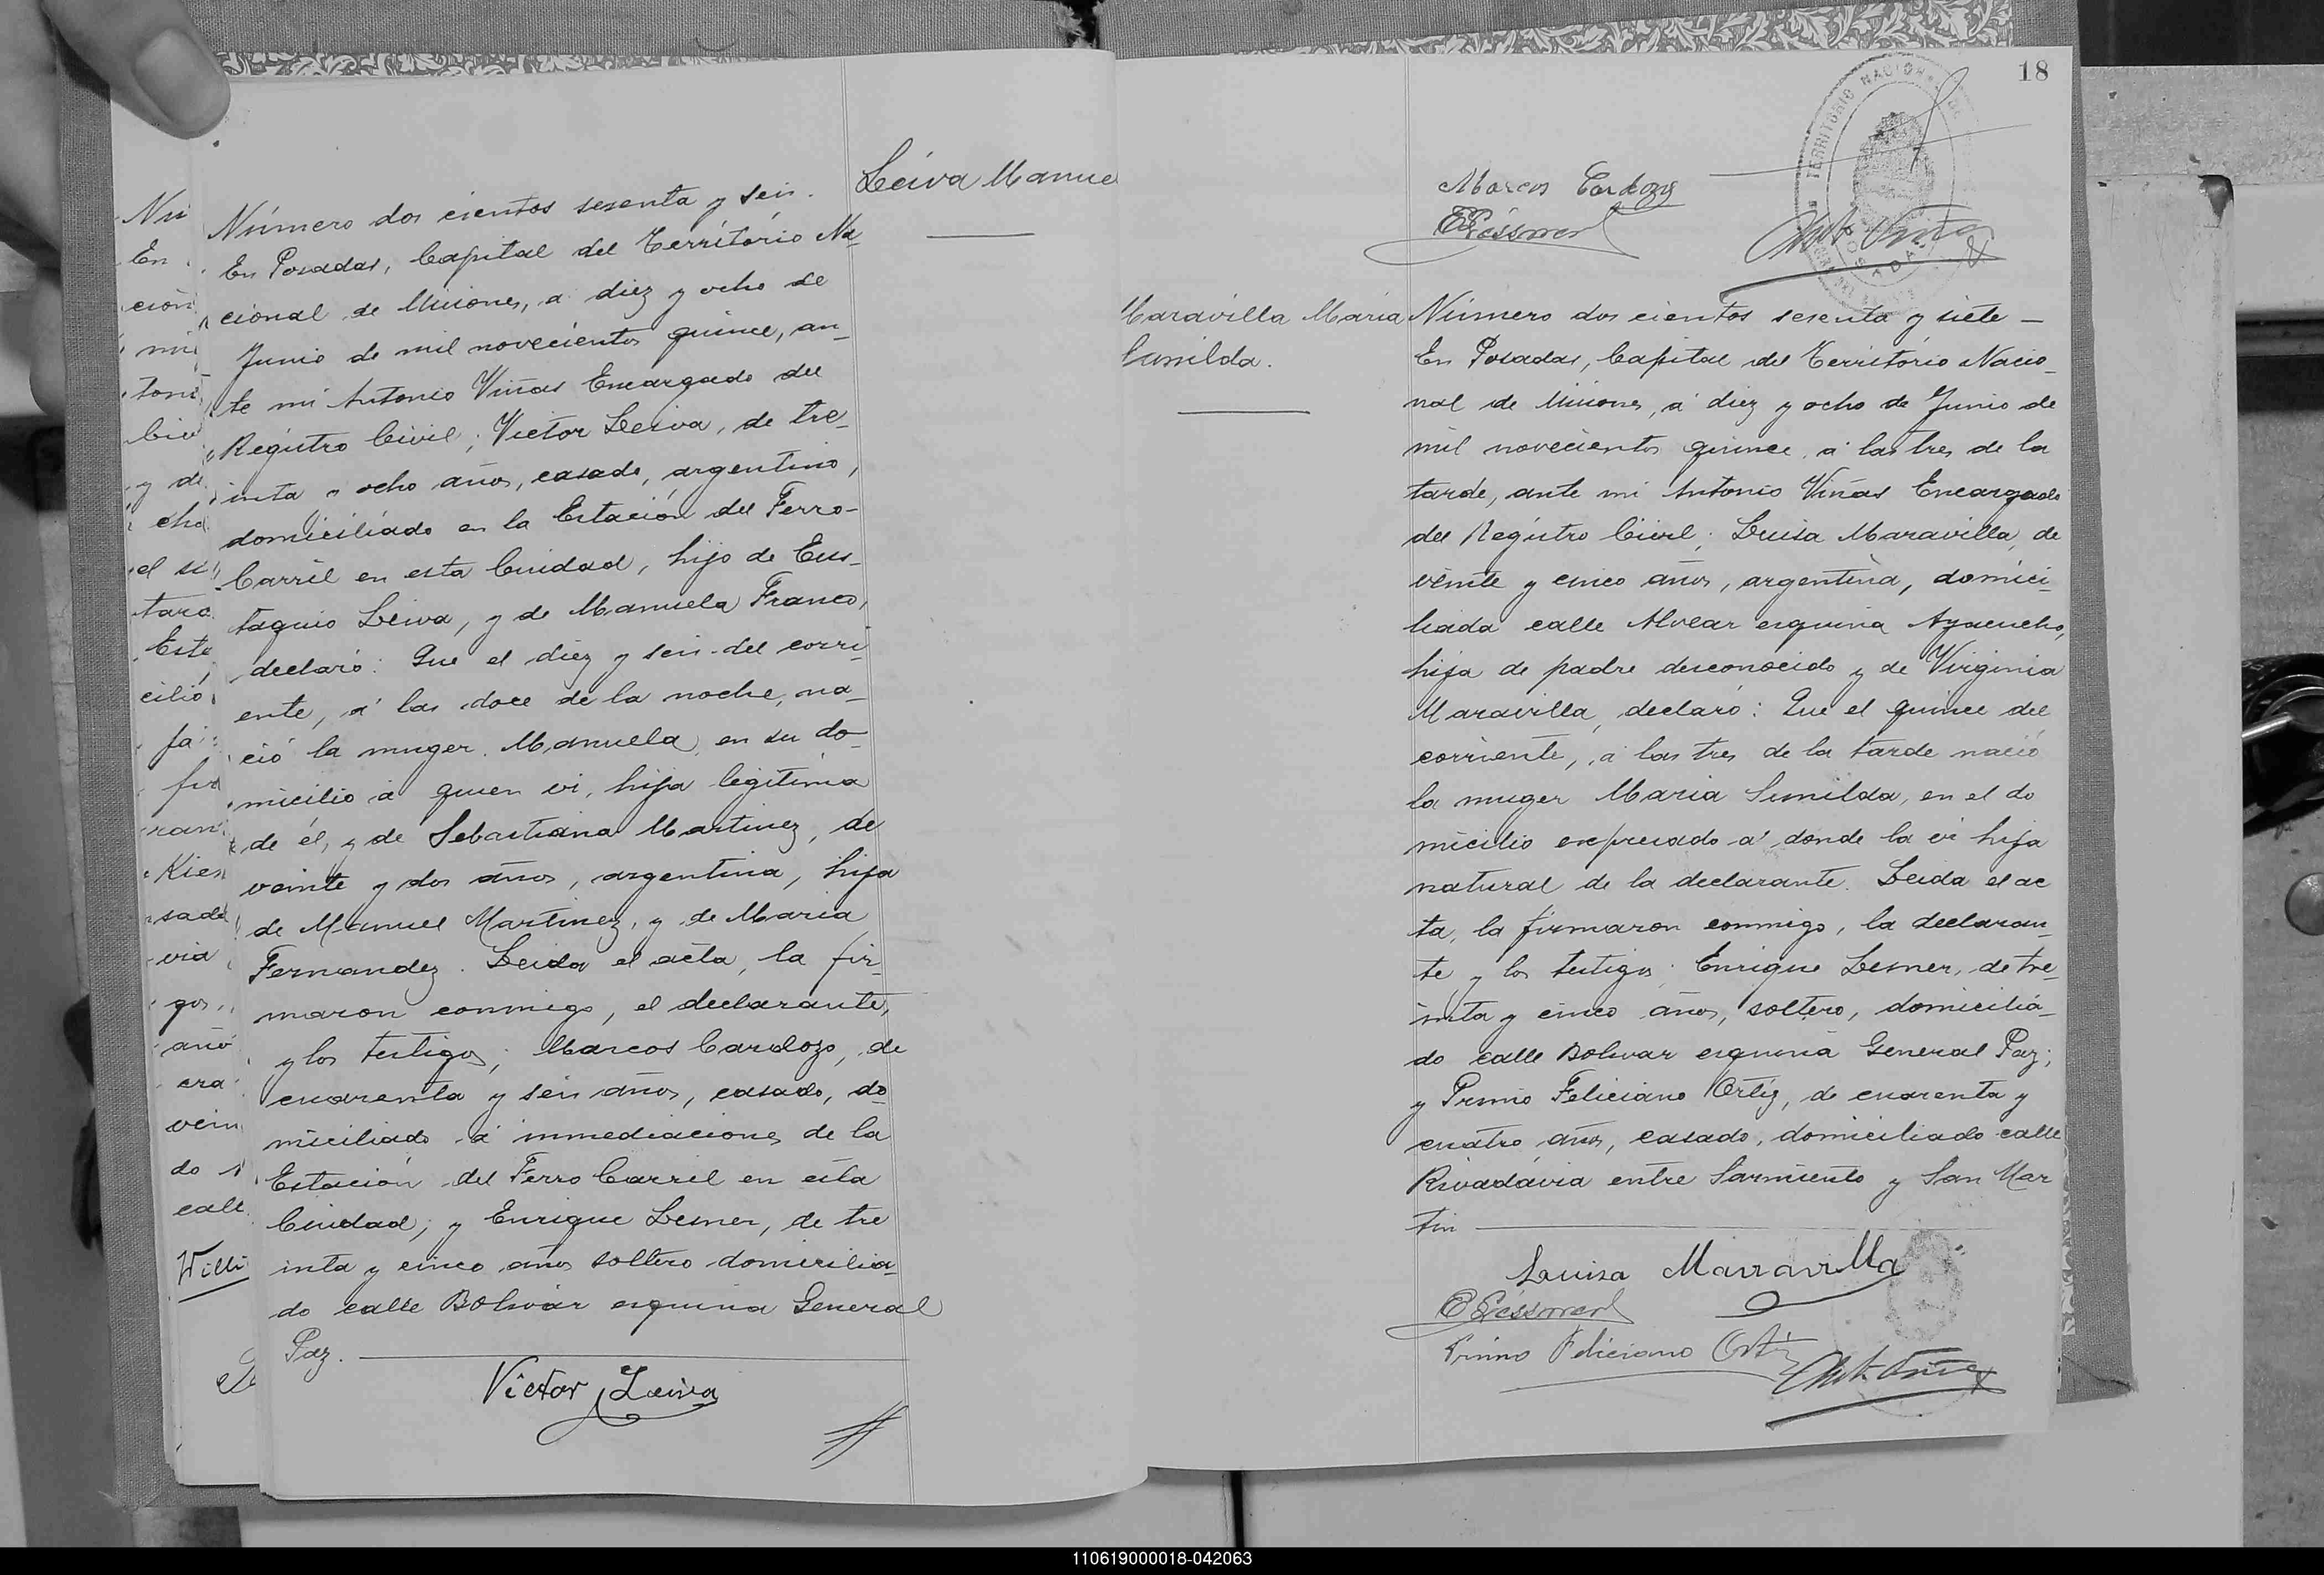 Nú
En
ción
mi
toni
bie
y de
cho
el si
tara
Este
cilio
ja
fir
ran
Kies
sado
via
gos,
año
era
vein
do
calle
Willi
Leiva Manue
Número dos cientos sesenta y seis.
En Posadas, Capital del Território Na-
cional de Misiones, á diez y ocho de
Junio de mil novecientos quince, an-
te mi Antonio Viñas Encargado del
Registro Civil; Victor Leiva, de tre-
inta y ocho años, casado, argentino,
domiciliado en la Estación del Ferro-
Carril en esta Ciudad, hijo de Eus-
taquio Leiva, y de Manuela Franco,
declaró: Que el diez y seis del corri-
ente, á las doce de la noche, na-
ció la muger Manuela en su do-
micilio á quien vi, hija legitima
de él, y de Sebastiana Martinez, de
veinte y dos años, argentina, hija
de Manuel Martinez, y de Maria
Fernandez. Leida el acta, la fir-
maron conmigo, el declarante,
y los testigos; Marcos Cardozo, de
cuarenta y seis años, casado, do
miciliado á inmediaciones de la
Estación del Ferro Carril en esta
Ciudad; y Enrique Lesner, de tre
inta y cinco años soltero domicilia-
do calle Bolivar esquina General
Paz.
Victor Leiva
18
TERRITORIO NACIONAL
POSADAS
Marcos Cardozo
Ant. Viñas
Maravilla Maria
Sunilda.
Número dos cientos sesenta y siete —
En Posadas, Capital del Território Nacio-
nal de Misiones, á diez y ocho de Junio de
mil novecientos quince, á las tres de la
tarde, ante mi Antonio Viñas Encargado
del Registro Civil; Luisa Maravilla, de
veinte y cinco años, argentina, domici-
liada calle Alvear esquina Ayacucho,
hija de padre desconocido y de Virginia
Maravilla, declaró: Que el quince del
corriente, á las tres de la tarde nació
la muger Maria Sunilda, en el do
micilio expresado á donde la vi hija
natural de la declarante. Leida el ac
ta, la firmaron conmigo, la declaran-
te y los testigos: Enrique Lesner, de tre-
inta y cinco años, soltero, domicilia-
do calle Bolivar esquina General Paz;
y Primo Feliciano Ortiz, de cuarenta y
cuatro años, casado, domiciliado calle
Rivadávia entre Sarmiento y San Mar
tin
Luisa Marravilla
Primo Feliciano Ortiz
Ant. Viñas
110619000018-042063